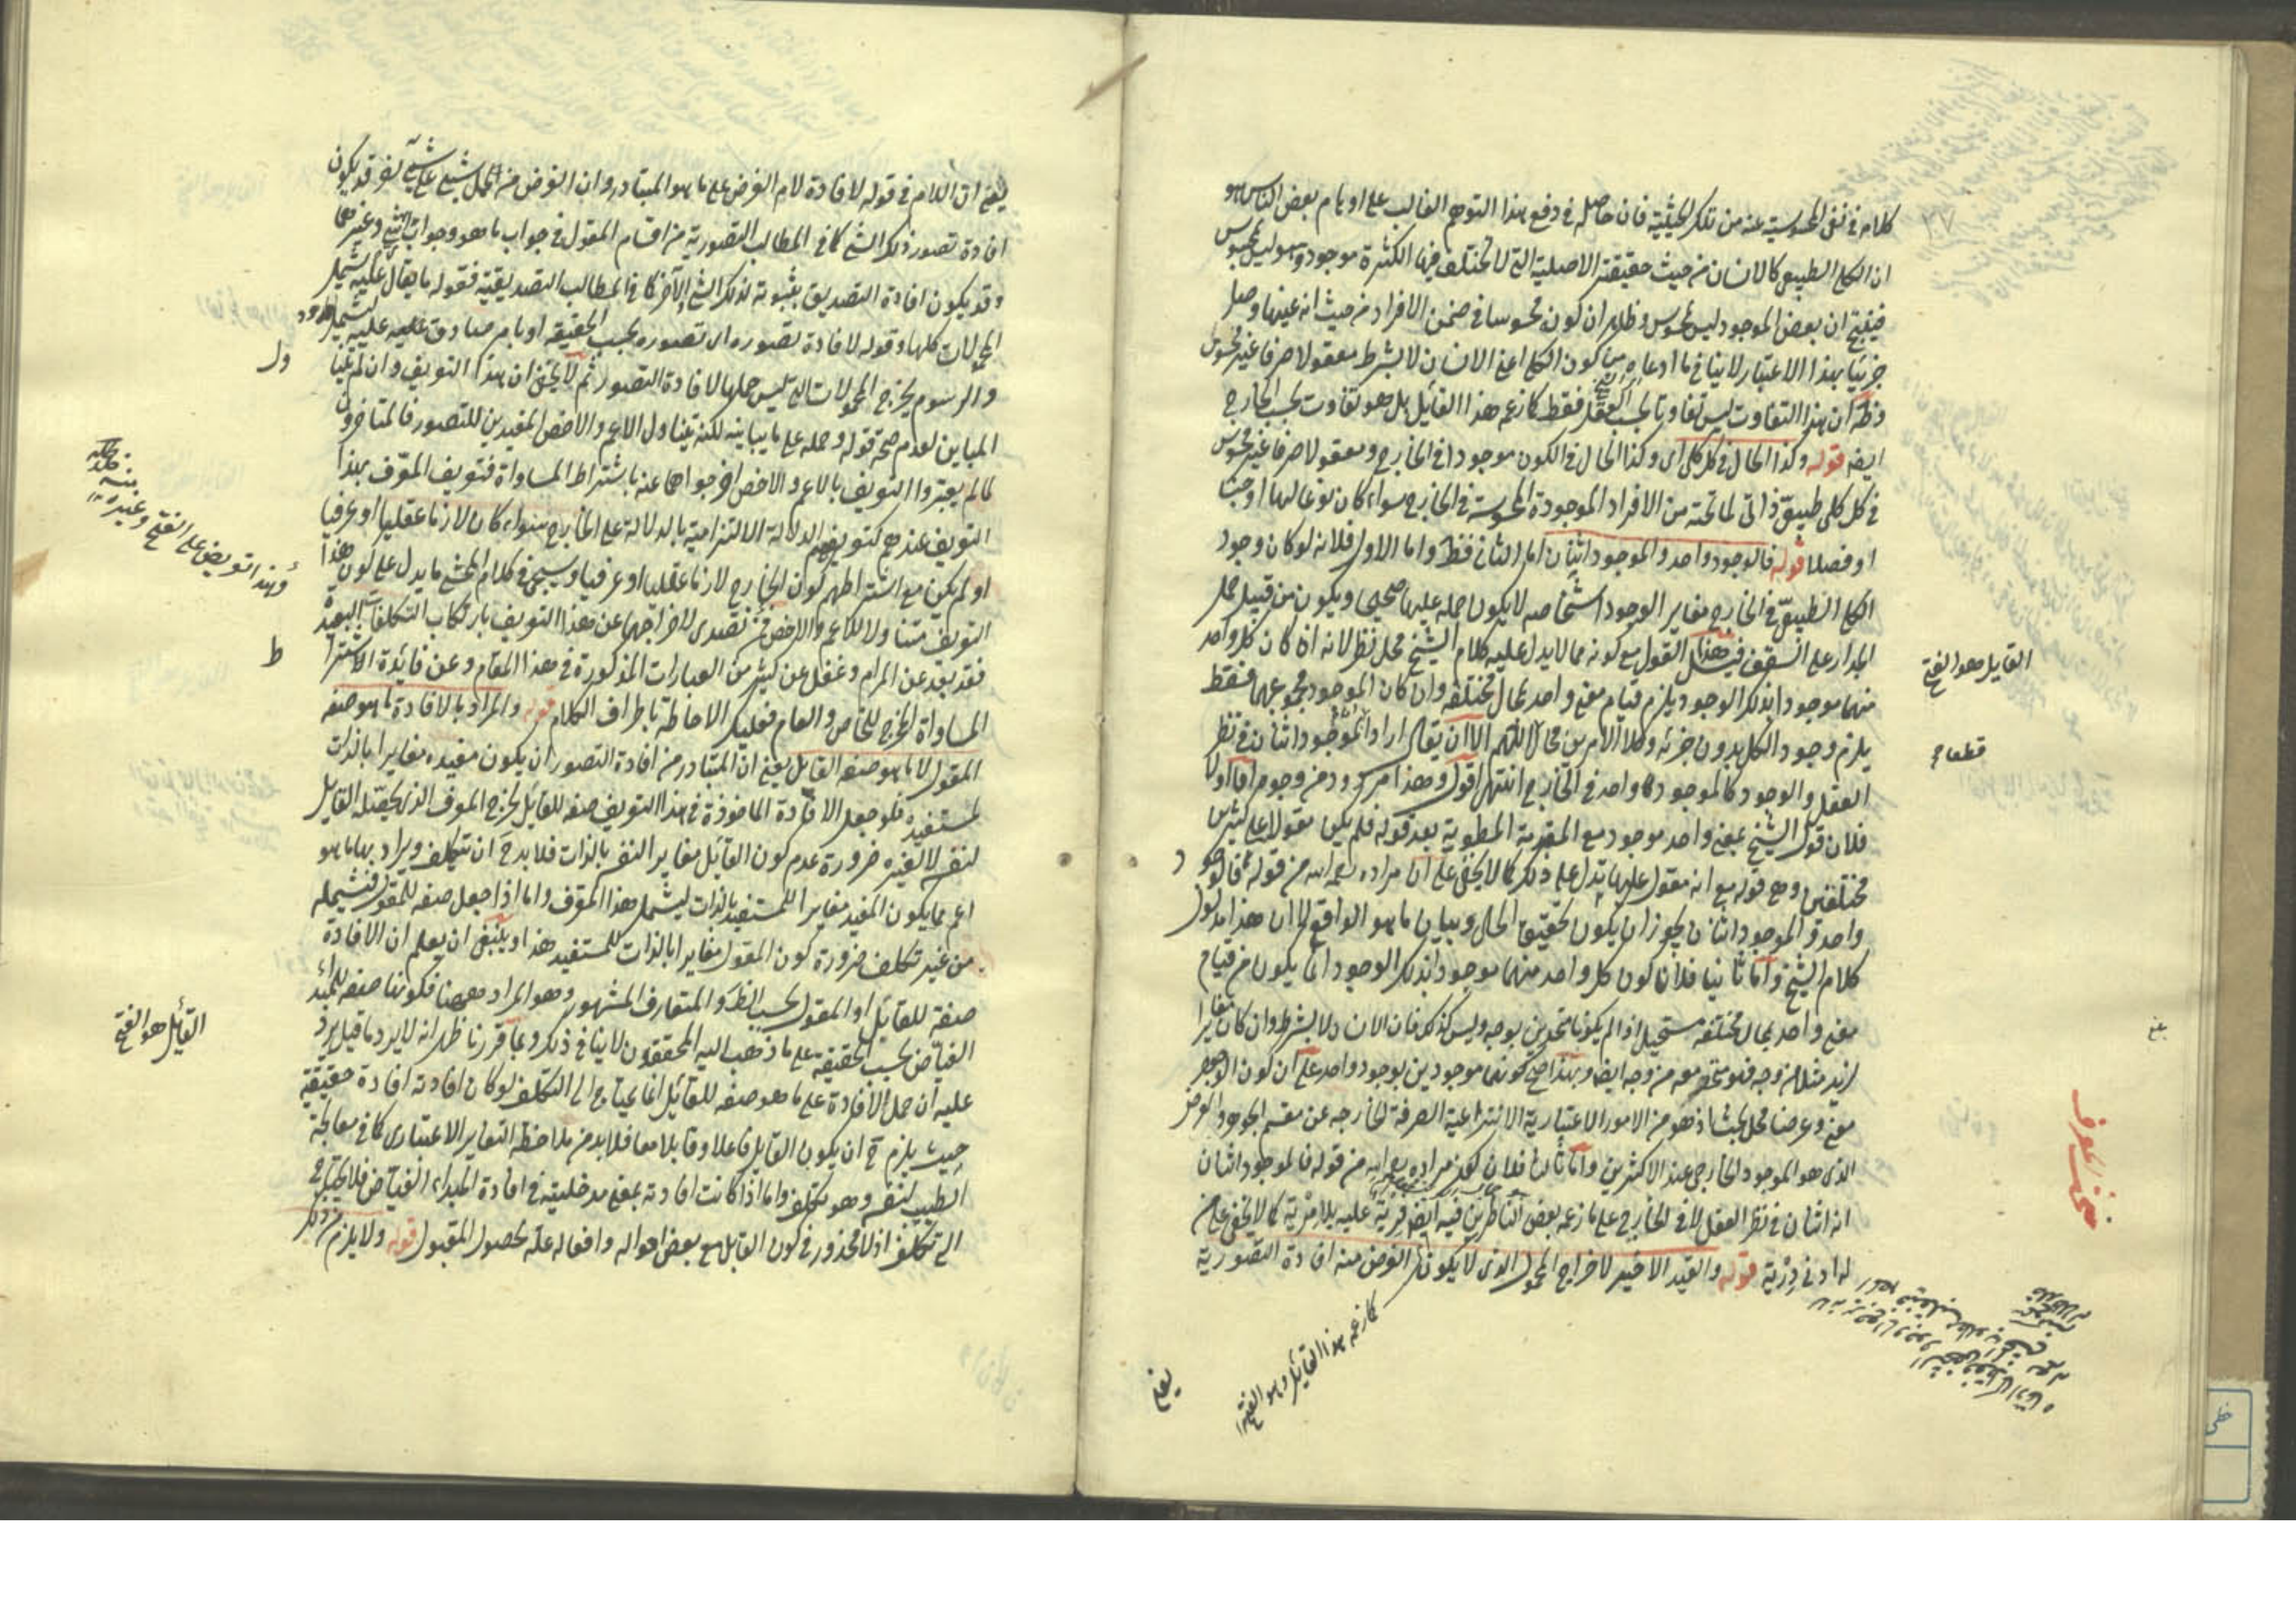 كلامه فى نفى المحسوسية عنه من تلك الحيثية فان حاصله فى دفع هذا التوهم الغالب على اوهام بعض الناس هو
ان الكلى الطبيعى كالانسان من حيث حقيقته الاصلية التى لا تختلف فيها الكثرة موجود وهو ليس بمحسوس
فينتج ان بعض الموجود ليس بمحسوس وظاهر ان كونه محسوسا فى ضمن الافراد من حيث انه عينها وصار
جزئيا بهذا الاعتبار لا ينافى ما ادعاه من كون الكلى اعنى الانسان لا بشرط معقولا صرفا غير محسوس
وظ ان هذا التفاوت ليس تفاوتا بحسب العقل فقط كما زعمه هذا القائل بل هو تفاوت بحسب الخارج
ايضا قوله وكذا الحال فى كل كلى اى وكذا الحال فى الكون موجودا فى الخارج ومعقولا صرفا غير محسوس
فى كل كلى طبيعى ذاتى لما تحته من الافراد الموجودة المحسوسة فى الخارج سواء كان نوعا لها او جنسا
او فصلا قوله فالوجود واحد والموجود اثنان اما الثانى فظ واما الاول فلانه لو كان وجود
الكلى الطبيعى فى الخارج مغاير الوجود اشخاصه لا يكون حمله عليها صحيحا ويكون من قبيل حمل
الجدار على السقف قيل هذا القول مع كونه مما لا يدل عليه كلام الشيخ محل نظر لانه اذا كان كل واحد
منهما موجودا بذلك الوجود يلزم قيام معنى واحد بمحال مختلفة وان كان الموجود مجموعهما فقط
يلزم وجود الكل بدون جزئه وكلا الامرين محال اللهم الا ان يقال اراد الموجود اثنان فى نظر
العقل والوجود كالموجود واحد فى الخارج انتهى اقول وهذا مردود من وجوه اما اولا
فلان قول الشيخ بمعنى واحد موجود مع المقدمة المطوية بعد قوله فلم يكن مقولا على كثيرين
مختلفين وهى قوله مع انه مقول عليها يدل على ذلك كما لا يخفى على ان مراده رحمه الله من قوله فالوجود
واحد والموجود اثنان يجوز ان يكون تحقيق الحال وبيان ما هو الواقع لا ان هذا مدلول
كلام الشيخ واما ثانيا فلان كون كل واحد منهما موجودا بذلك الوجود انما يكون من قيام
معنى واحد بمحال مختلفة مستحيل اذا لم يكونا متحدين بوجه وليس كذلك فان الانسان لا بشرط وان كان مغايرا
لزيد مثلا من وجه فهو متحد معه من وجه ايضا وبهذا صح كونهما موجودين بوجود واحد على ان كون الوجود
معنى وعرضا محل بحث اذ هو من الامور الاعتبارية الانتزاعية الصرفة الخارجة عن مقسم الجوهر والعرض
الذى هو الموجود الخارجى عند الاكثرين واما ثالثا فلان كون مراده رحمه الله من قوله فالموجود اثنان
انه اثنان فى نظر العقل لا فى الخارج على ما زعمه بعض الناظرين فيه ايضا فرية عليه بلا مرية كما لا يخفى على من
له ادنى درية قوله والقيد الاخير لاخراج المحمول الذى لا يكون الغرض منه افادة التصورية
القايل هو الفتح
قطعا
مبحث المعرف
كما زعمه هذا القايل وهو الفتح
يعنى
يعنى ان اللام فى قوله لافادة لام الغرض على ما هو المتبادر وان الغرض من حمل شيء على شيء آخر قد يكون
افادة تصور ذلك الشيء كما فى المطالب التصورية من اقسام المقول فى جواب ما هو وجواب اى شيء وغيرهما
وقد يكون افادة التصديق بثبوته لذلك الشيء الآخر كما فى المطالب التصديقية فقوله ما يقال عليه يشمل
المحمولات كلها وقوله لافادة تصوره اى تصوره بحسب الحقيقة او بامر صادق عليه ليشمل الحدود
والرسوم يخرج المحمولات التى ليس حملها لافادة التصور ثم لا يخفى ان هذا التعريف وان لم يتناول
المباين لعدم صحة قوله وحمله على ما يباينه لكنه يتناول الاعم والاخص المفيدين للتصور فالمتاخرون
لما لم يعتبروا التعريف بالاعم والاخص اخرجواهما عنه باشتراط المساواة فتعريف المعرف بهذا
التعريف عندهم كتعريفهم الدلالة الالتزامية بالدلالة على الخارج سواء كان لازما عقليا او عرفيا
او لم يكن مع اشتراطهم كون الخارج لازما عقليا او عرفيا وسيجئ فى كلام المحشى ما يدل على كون هذا
التعريف متناولا للاعم والاخص فمن تصدى لاخراجهما عن هذا التعريف بارتكاب التكلفات البعيدة
فقد بعد عن المرام وغفل عن كثير من العبارات المذكورة فى هذا المقام وعن فائدة الاشتراط
المساواة المخرج للخاص والعام فعليك الاحاطة باطراف الكلام قوله والمراد بالافادة ما هو صفة
المقول لا ما هو صفة القايل يعنى ان المتبادر من افادة التصور ان يكون مفيده مغايرا بالذات
لمستفيده فلو جعل الافادة الماخوذة فى هذا التعريف صفة للقائل يخرج المعرف الذى يحصله القايل
لنفسه لا لغيره ضرورة عدم كون القائل مغاير النفسه بالذات فلا بد ح ان يتكلف ويراد بها ما هو
اعم مما يكون المفيد مغايرا للمستفيد بالذات ليشمل هذا المعرف واما اذا جعل صفة للمقول فيشمله
من غير تكلف ضرورة كون المقول مغايرا بالذات للمستفيد هذا وينبغى ان يعلم ان الافادة
صفة للقائل او المقول بحسب الظاهر والمتعارف المشهور وهو المراد ههنا فكونها صفة للمبدأ
الفياض بحسب الحقيقة على ما ذهب اليه المحققون لا ينافى ذلك وبما قررنا ظهر انه لا يرد ما قيل يرد
عليه ان حمل الافادة على ما هو صفة للقائل انما يحتاج الى التكلف لو كان افادته افادة حقيقية
حيث يلزم ح ان يكون القايل فاعلا وقابلا معا فلا بد من ملاحظة التغاير الاعتبارى كما فى معالجة
الطبيب لنفسه وهو تكلف واما اذا كانت افادته بمعنى مدخليته فى افادة المبداء الفياض فلا يحتاج
الى تكلف اذ لا محذور فى كون القابل مع بعض احواله وافعاله علة لحصول المقبول قوله ولا يلزم من ذلك
وهذا تعريض على الفتح وغيره
القائل هو الفتح